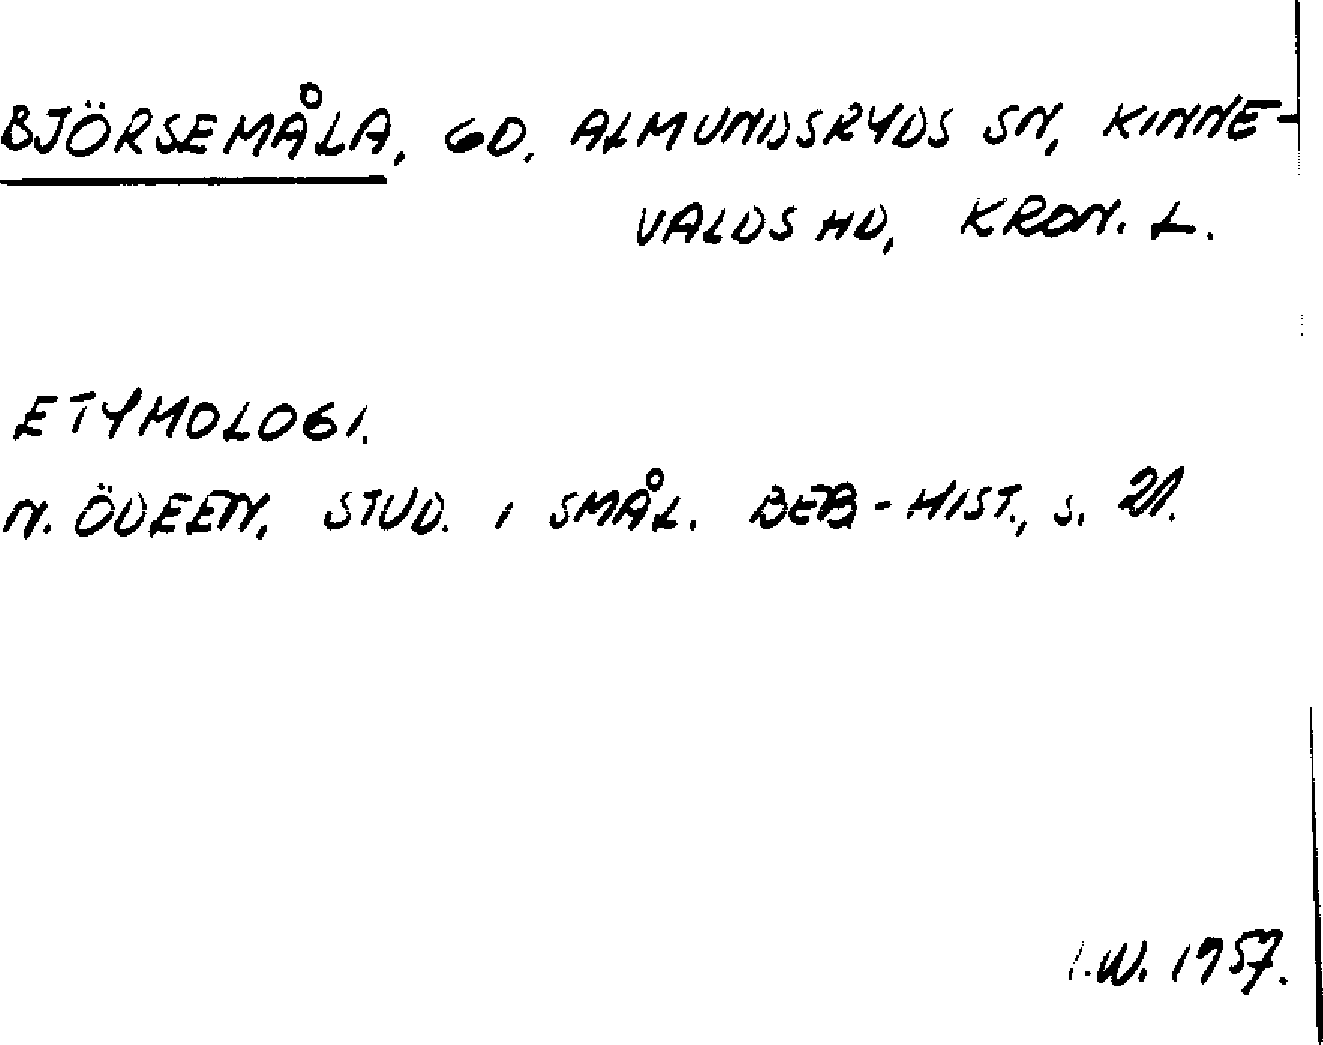 BJÖRSEMÅLA, GD, ALMUNDSRYDS SN, KINNE-
VALDS HD, KRON. L.
ETYMOLOGI.
N. ÖDEEN, STUD. I SMÅL. BEB-HIST., S. 21.
I.W. 1957.